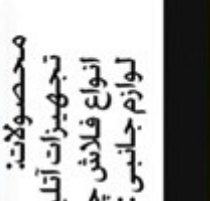 محصولات:
تجهیزات
انواع فلاش
لوازم جانبی